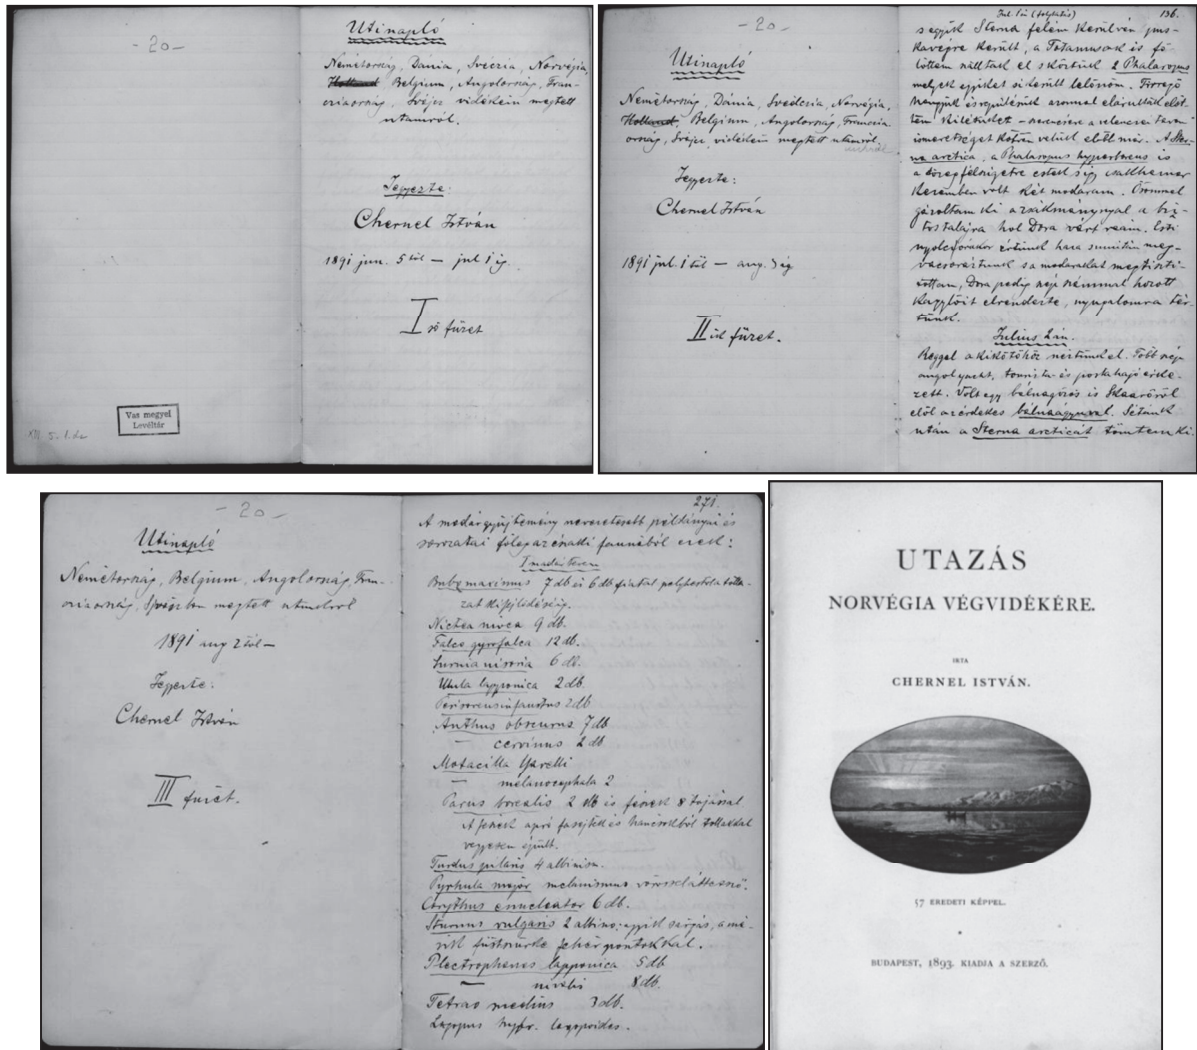 - 20 -
Vas megyei
Levéltár
XII 5. 1.
Utinapló
Németország, Dánia, Svéczia, Norvégia,
Holland Belgium, Angolország, Fran-
cziaország, Svájcz vidékein megtett
utamról.
Jegyezte:
Chernel István
1891 jun. 5 től — jul 1 ig.
I ső füzet
- 20 -
Utinapló
Németország, Dánia, Svédczia, Norvégia,
Holland, Belgium, Angolország, Franczia
ország, Svájcz vidékein megtett utamról.
Jegyezte:
Chernel István
1891 jul. 1 től — aug. 3 ig
II ik füzet.
Jul 1én (folytatás) 136.
segyik Sterna felém kerülvén pus-
kavégre került, a Totanusok is fö-
löttem szálltak el s köztük 2 Phalaropus
melyek egyikét sikerült lelőnöm.
ismeretséget kötve velük előtt már. A Ster-
na arctica, a Phalaropus hyperboreus is
a közép félszigetre estek s így csakhamar
kezemben volt két madaram. Örömmel
gázoltam ki a zsákmánynyal a biz-
tos talajra hol Dora várt reám. Esti
nyolcz órakor értünk haza s miután meg-
vacsoráztunk s a madarakat megtiszti-
tottam, Dora pedig néji számmal hozott
kagylóit elrendezte, nyugalomra tér-
tünk.
Julius 2án.
Reggel a kikötőhöz néztünk el. Több néji
angol yacht, tourista- és postahajó érke-
zett. Volt egy bálnagőzös is Skaaröről
elől az érdekes bálnaágyúval. Sétánk
után a Sterna arcticát tömtem ki.
- 20 -
Utinapló
Németország, Belgium, Angolország, Fran-
cziaország, Svájczban megtett utunkról
1891 aug 2 től —
Jegyezte:
Chernel István
III füzet.
271.
A madárgyüjtemény nevezetesebb példányai és
sorozatai főleg az északi faunából ezek:
I madárterem
Bubo maximus 7 db és 6 db fiatal pelyhestől a tolla-
zat kifejlődéséig.
Nictea nivea 9 db.
Falco gyrofalco 12 db.
Surnia nisoria 6 db.
Ulula lapponica 2 db.
Perisoreus infaustus 2 db
Anthus obscurus 7 db
— cervinus 2 db
Motacilla Yarelli
— melanocephala 2
Parus borealis 2 db és fészek 8 tojással
A fészek apró faszőrök és háncsokból tollakkal
vegyesen épült.
Turdus pilaris 4 albinism.
Pyrhula major melanismus vörös
Corythus enucleator 6 db.
Sturnus vulgaris 2 albino: egyik sárgás, a má-
sik füstszürke fehér pontokkal.
Plectrophenes lapponica 5 db
— nivalis 8 db.
Tetrao medius 3 db.
Lagopus hybr. lagopoides.
UTAZÁS
NORVÉGIA VÉGVIDÉKÉRE.
IRTA
CHERNEL ISTVÁN.
57 EREDETI KÉPPEL.
BUDAPEST, 1893. KIADJA A SZERZŐ.